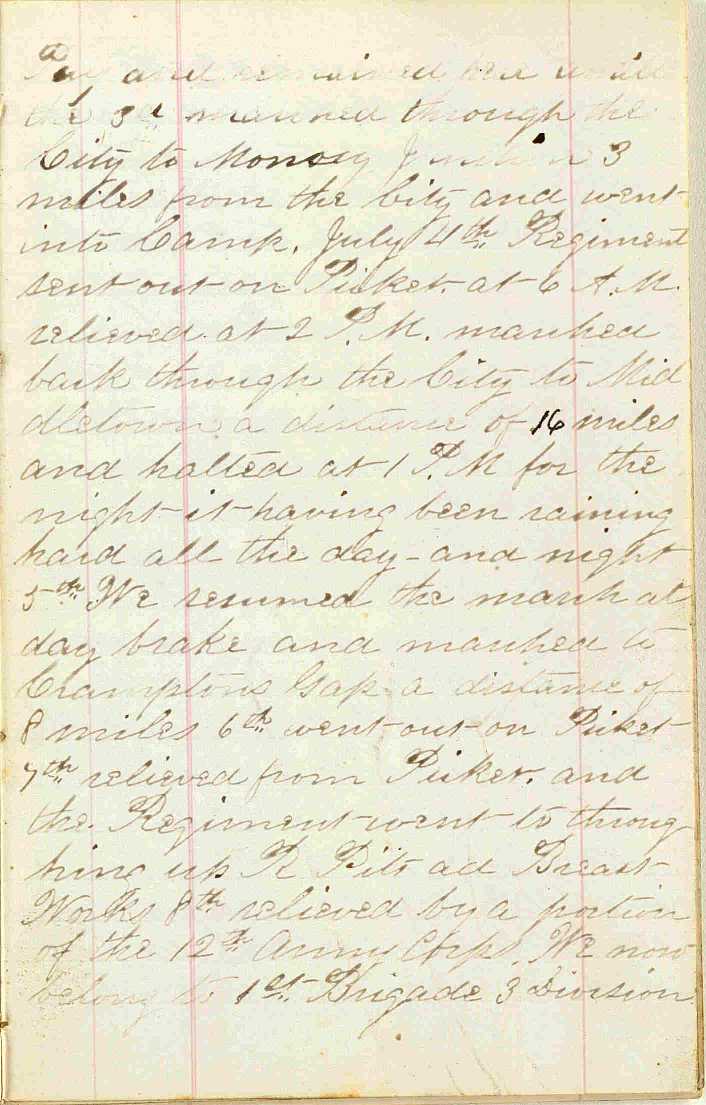 Pay and remained here until
the 3d marched through the
City to Monocy Junction 3
miles from the City and went
into Camp. July 4th Regiment
sent out on Picket. at 6 A.M.
relieved. at 2 P.M. marched
back through the City to Mid
dletown a distance of 16 miles
and halted at 1 P.M for the
night it having been raining
hard all the day - and night
5th We resumed the march at
day brake and marched to
Cramptons Gap a distance of
8 miles 6th went out on Picket
7th relieved from Picket. and
the Regiment went to throug
hing up R Pits ad Breast
Works 8th relieved by a portion
of the 12th Army Corps. We now
belong to 1st Brigade 3 Division